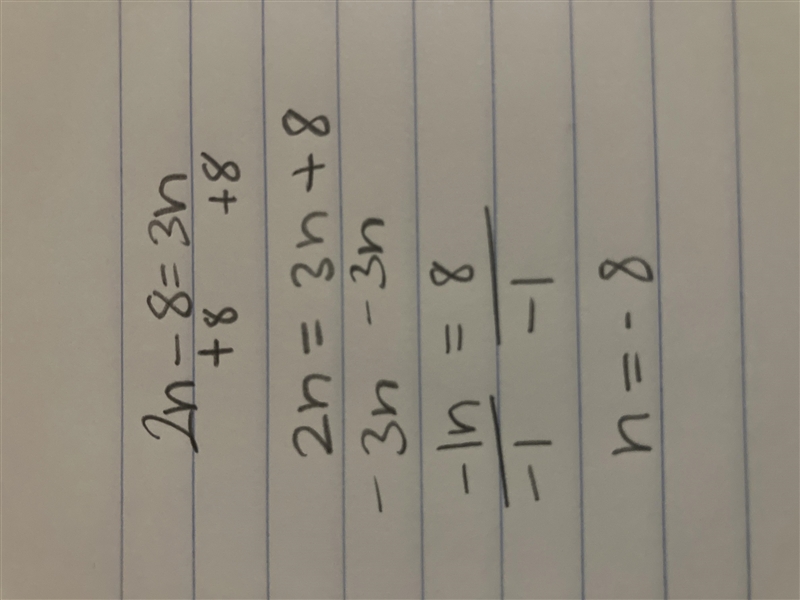 2n - 8 = 3n
+8 +8
2n = 3n + 8
- 3n - 3n
-1n = 8
-1 -1
n = - 8